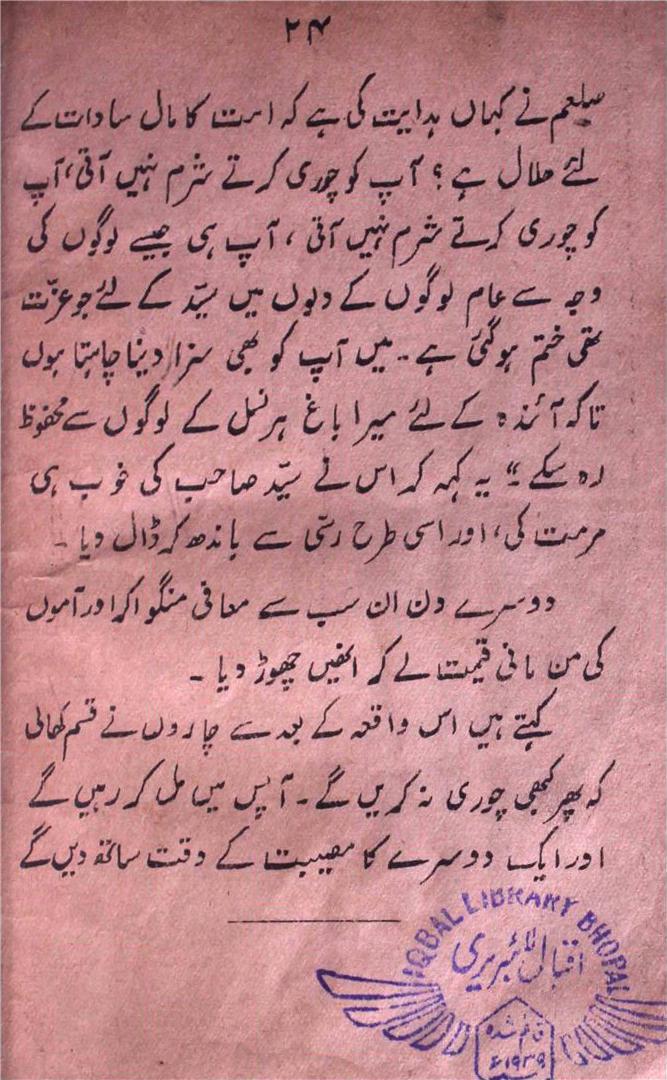 ۲۴
صلعم نے کہاں ہدایت کی ہے کہ امت کا مال سادات کے
لئے حلال ہے؟ آپ کو چوری کرتے شرم نہیں آتی، آپ
کو چوری کرتے شرم نہیں آتی، آپ ہی جیسے لوگوں کی
وجہ سے عام لوگوں کے دلوں میں سیّد کے لئے جو عزّت
تھی ختم ہوگئی ہے۔ میں آپ کو بھی سزا دینا چاہتا ہوں
تاکہ آئندہ کے لئے میرا باغ ہر نسل کے لوگوں سے محفوظ
رہ سکے" یہ کہہ کر اس نے سیّد صاحب کی خوب ہی
مرمت کی، اور اسی طرح رسّی سے باندھ کر ڈال دیا۔
دوسرے دن ان سب سے معافی منگوا کر اور آموں
کی من مانی قیمت لے کر انھیں چھوڑ دیا۔
کہتے ہیں اس واقعہ کے بعد سے چاروں نے قسم کھالی
کہ پھر کبھی چوری نہ کریں گے۔ آپس میں مل کر رہیں گے
اور ایک دوسرے کا مصیبت کے وقت ساتھ دیں گے
IQBAL LIBRARY BHOPAL
اقبال لائبریری
قائم شدہ
۱۹۳۹ء